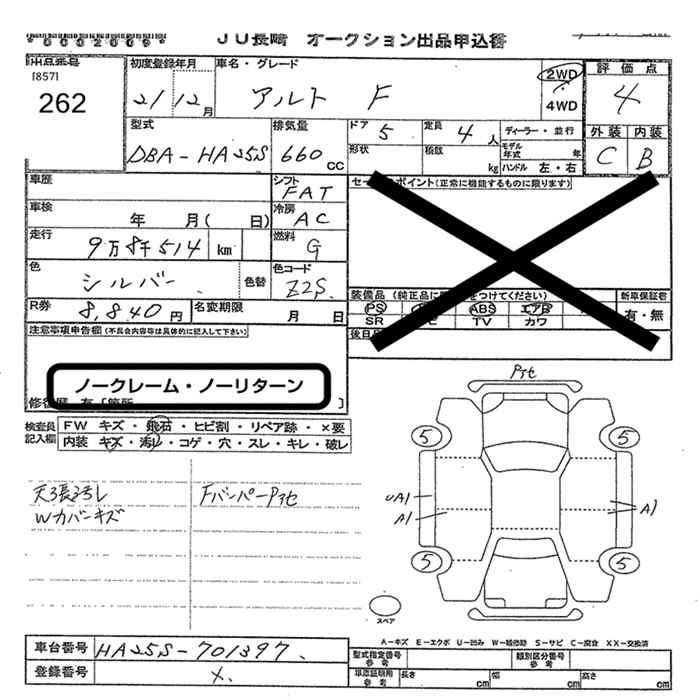 *0002009* JU長崎 オークション出品申込書
出品番号 初度登録年月 車名・グレード 2WD 評価点
[857]
262 21/12月 アルト F 4WD 4
型式 排気量 ドア 5 定員 4人 ディーラー・並行 外装 内装
DBA-HA25S 660cc 形状 積数 kg モデル年式 年 ハンドル 左・右 C B
車歴 シフト FAT セールスポイント(正常に機能するものに限ります)
車検 年 月( 日) 冷房 AC
走行 9万8千514 km 燃料 G
色 シルバー 色替 色コード Z2S 装備品(純正品に をつけてください) 新車保証書
R券 8,840円 名変期限 月 日 PS ABS エアB 有・無
SR TV カワ
注意事項申告欄(不具合内容等は具体的に記入して下さい) 後日
ノークレーム・ノーリターン
修復歴 有[箇所 ]
検査員記入欄 FW キズ・飛石・ヒビ割・リペア跡・×要
内装 キズ・汚れ・コゲ・穴・スレ・キレ・破レ
Pｱｾ
5 5
天張ヨゴレ FバンパーPｱｾ
Wカバーキズ
UA1 A1
A1
5 5
スペア
A-キズ E-エクボ U-凹み W-補修跡 S-サビ C-腐食 XX-交換済
車台番号 HA25S-701397 型式指定番号 参考 類別区分番号 参考
登録番号 X 車庫証明用 参考 長さ cm 幅 cm 高さ cm